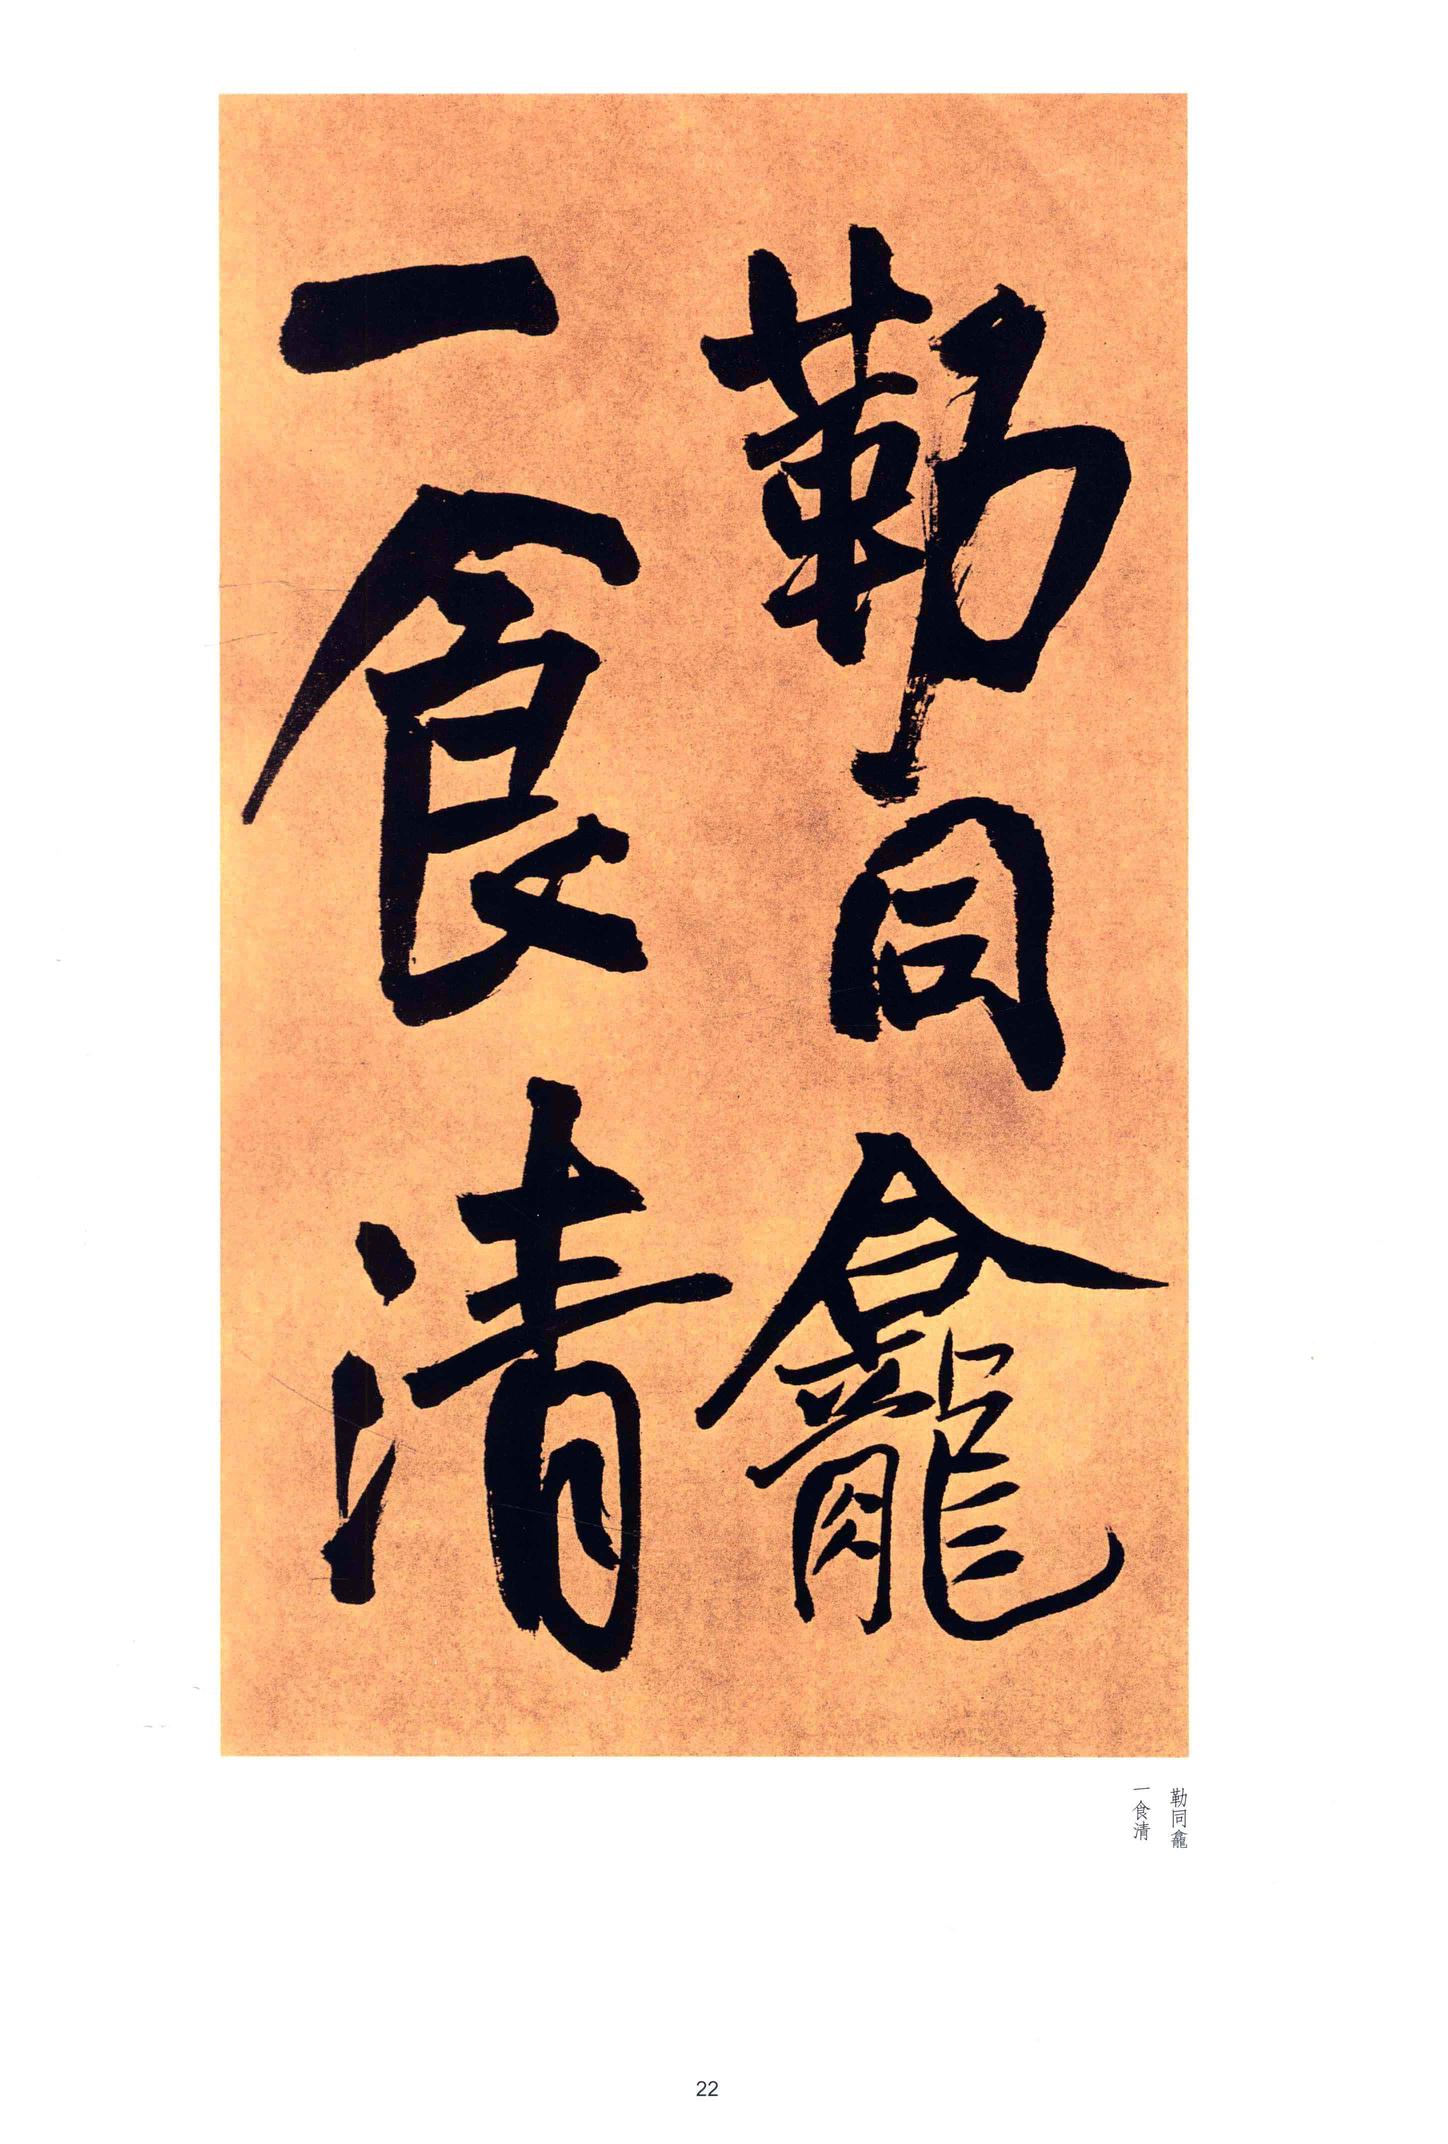 勒同龕
一食清
勒同龕
一食清
22